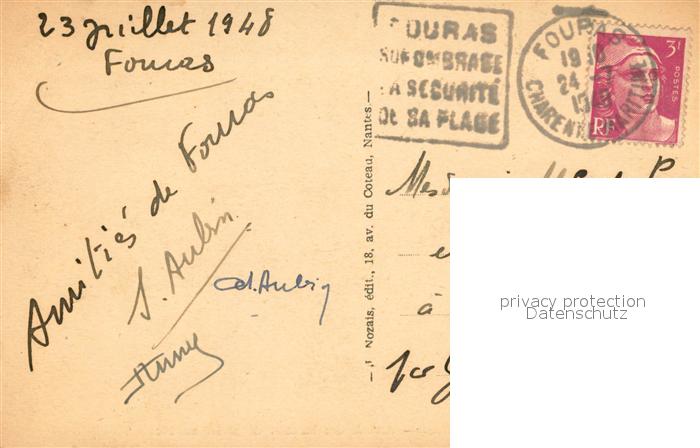 23 juillet 1948
Fouras
Amitiés de Fouras
S. Aubin
d. Aubin
FOURAS
SON OMBRAGE
LA SECURITÉ
DE SA PLAGE
FOURAS
24
CHARENTE MARITIME
3F
POSTES
RF
Nozais, édit., 18, av. du Coteau, Nantes.
à
privacy protection
Datenschutz